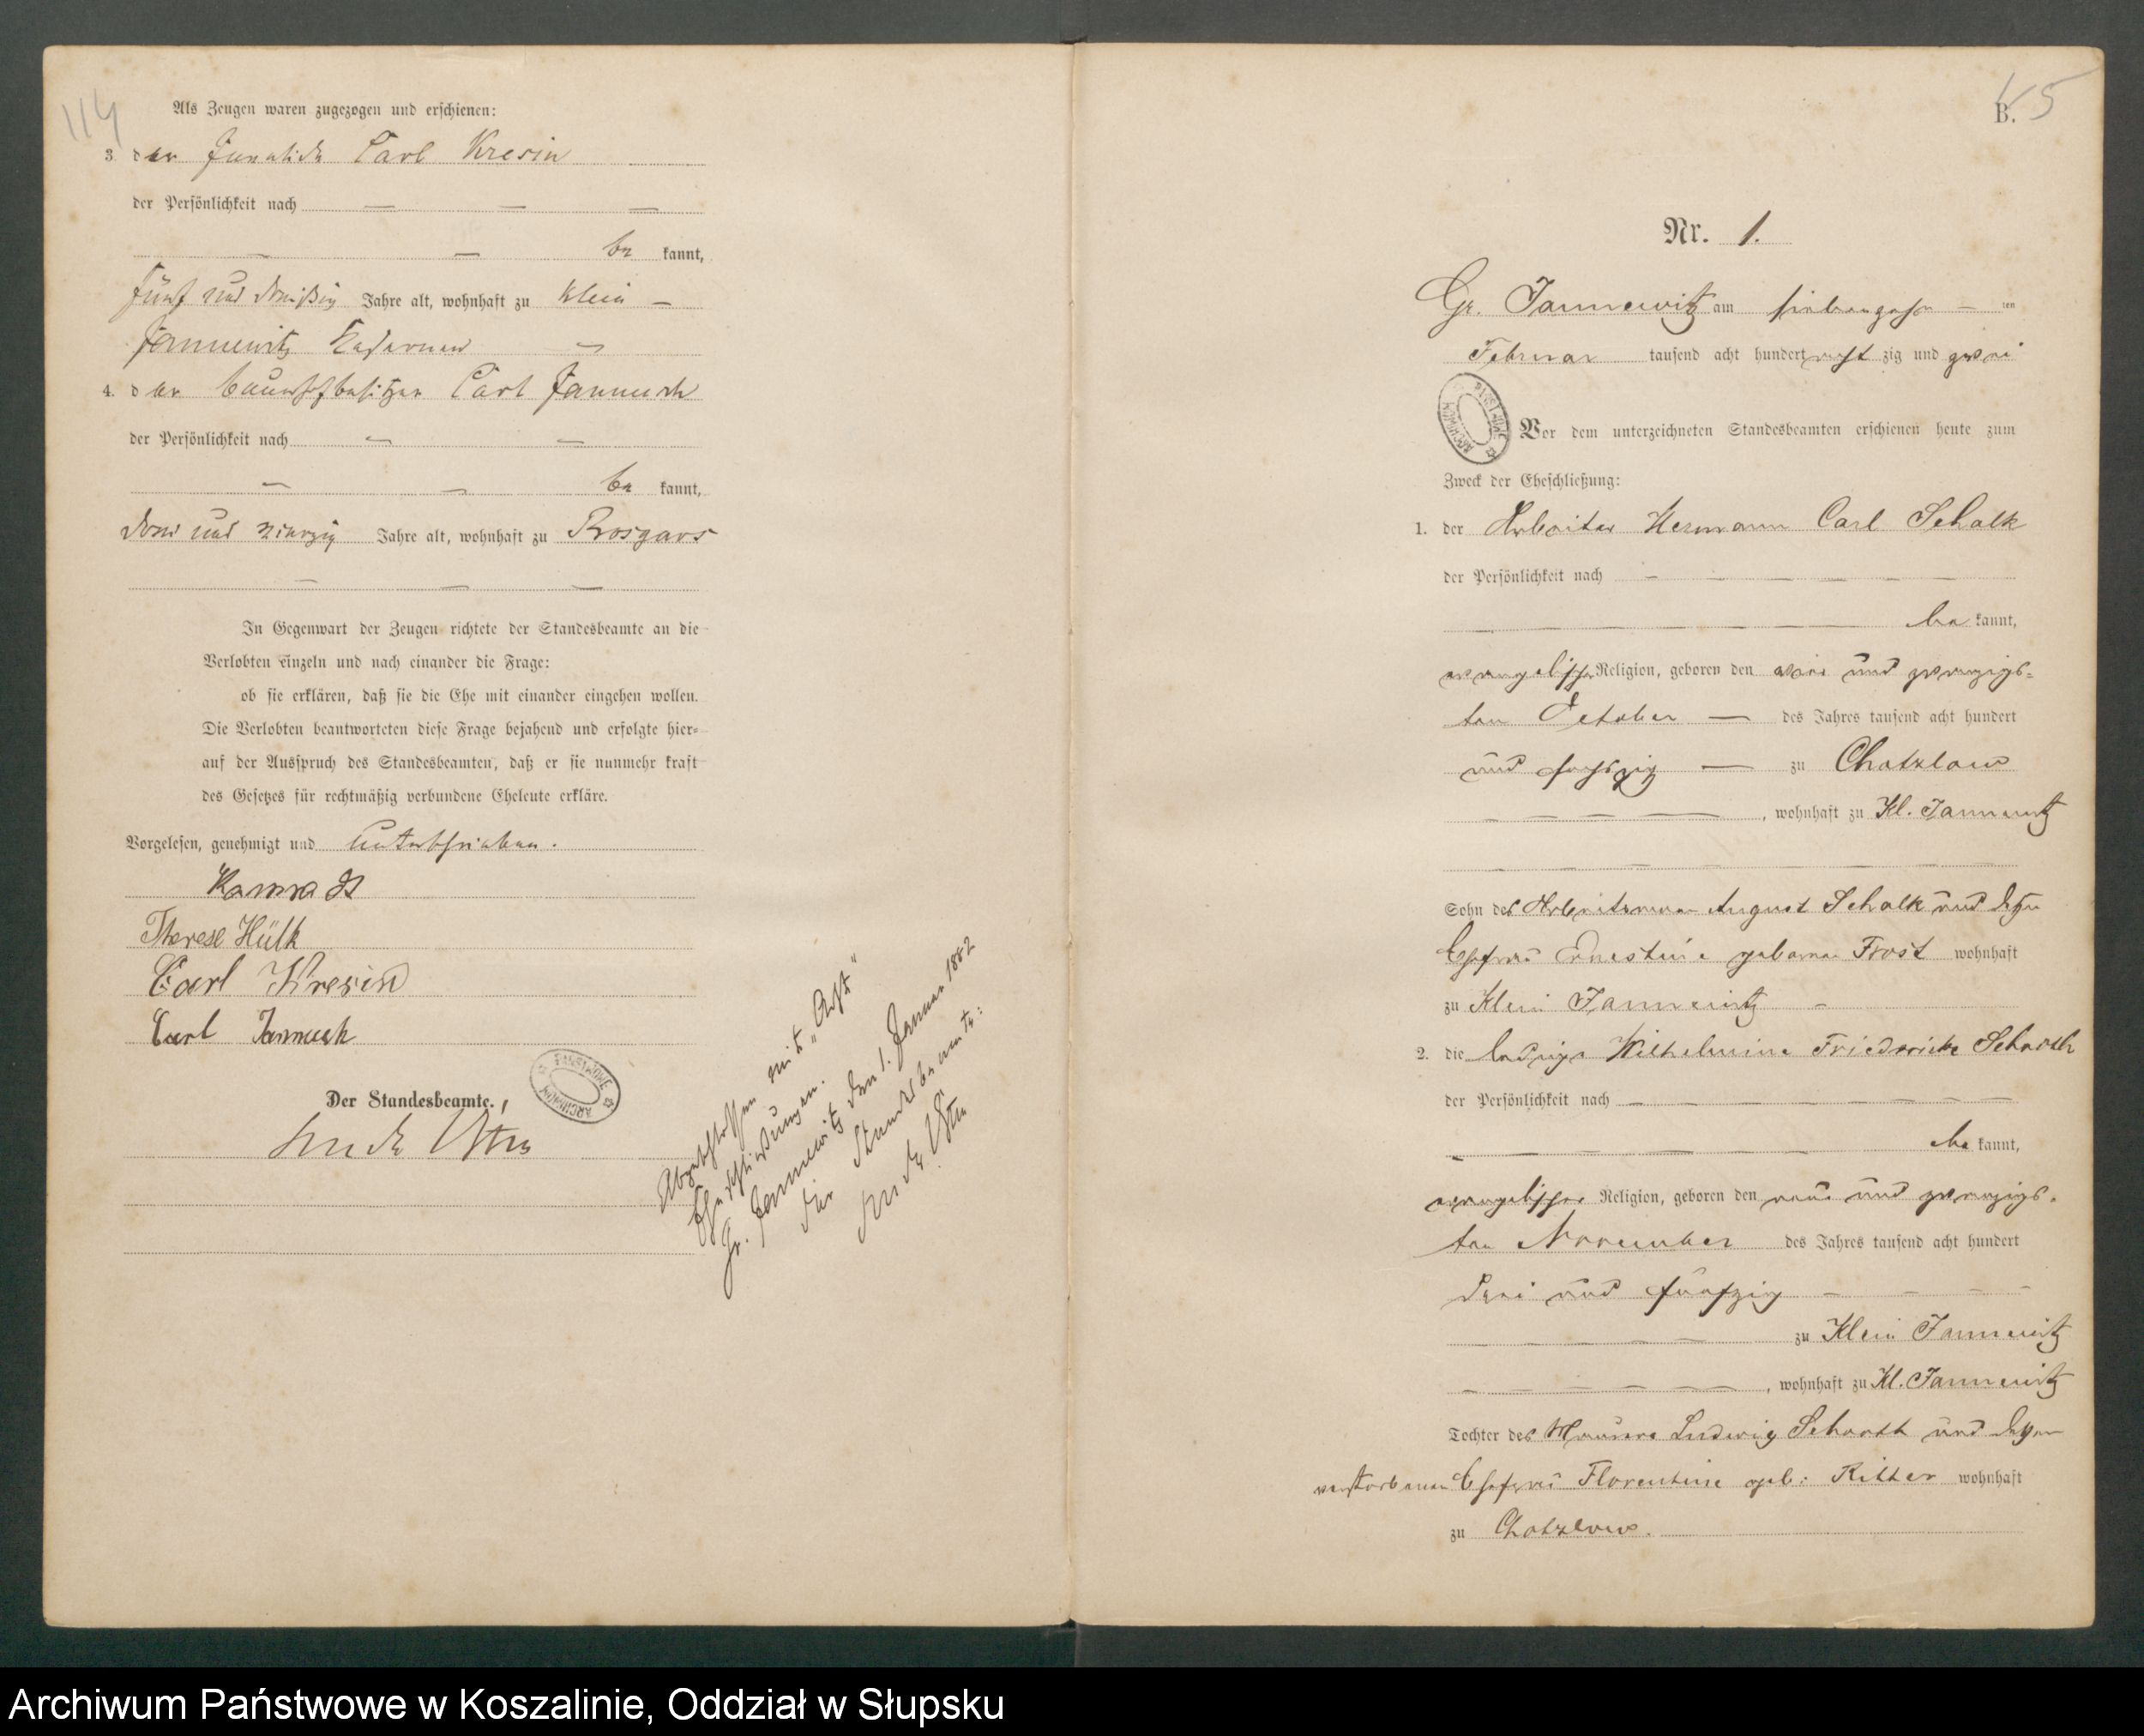 114
Als Zeugen waren zugezogen und erschienen:
3. der Invalide Carl Kresin
der Persönlichkeit nach — — —
— — be kannt,
fünf und dreißig Jahre alt, wohnhaft zu Klein —
Jannewitz
4. der Bauerhofbesitzer Carl Jannuch
der Persönlichkeit nach — —
— — be kannt,
drei und vierzig Jahre alt, wohnhaft zu Rosgars
— — —
In Gegenwart der Zeugen richtete der Standesbeamte an die
Verlobten einzeln und nach einander die Frage:
ob sie erklären, daß sie die Ehe mit einander eingehen wollen.
Die Verlobten beantworteten diese Frage bejahend und erfolgte hier-
auf der Ausspruch des Standesbeamten, daß er sie nunmehr kraft
des Gesetzes für rechtmäßig verbundene Eheleute erkläre.
Vorgelesen, genehmigt und unterschrieben.
Therese Hülk
Carl Kresin
Carl Jannuch
Der Standesbeamte.
PAŃSTWOWE ARCHIWUM
Abgeschlossen mit „Acht“
Eheschließungen.
Gr. Jannewitz den 1. Januar 1882
Der Standesbeamte:
B.
Nr. 1.
Gr. Jannewitz am siebenzehn — ten
Februar tausend acht hundert acht zig und zwei
PAŃSTWOWE ARCHIWUM
Vor dem unterzeichneten Standesbeamten erschienen heute zum
Zweck der Eheschließung:
1. der Arbeiter Hermann Carl Schalk
der Persönlichkeit nach — — — — —
— — — — be kannt,
evangelischer Religion, geboren den ein und zwanzigs-
ten October — des Jahres tausend acht hundert
und sechszig — zu Chotzlow
— — — —, wohnhaft zu Kl. Jannewitz
— — — — —
Sohn des Arbeitsmann August Schalk und dessen
Ehefrau Ernestine geborne Frost wohnhaft
zu Klein Jannewitz —
2. die ledige Wilhelmine Friedricke Schorth
der Persönlichkeit nach — — — — —
— — — — be kannt,
evangelischer Religion, geboren den neun und zwanzigs-
ten November des Jahres tausend acht hundert
drei und fünfzig — — —
— — — zu Klein Jannewitz
— — — —, wohnhaft zu Kl. Jannewitz
Tochter des Maurers Ludwig Schorth und dessen
verstorbenen Ehefrau Florentine geb: Ritter wohnhaft
zu Chotzlow.
Archiwum Państwowe w Koszalinie, Oddział w Słupsku